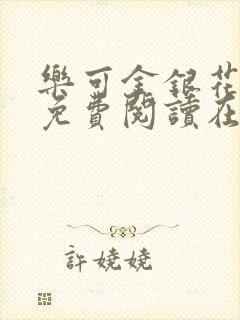 樂可金銀花
免費閱讀在
許嬈嬈